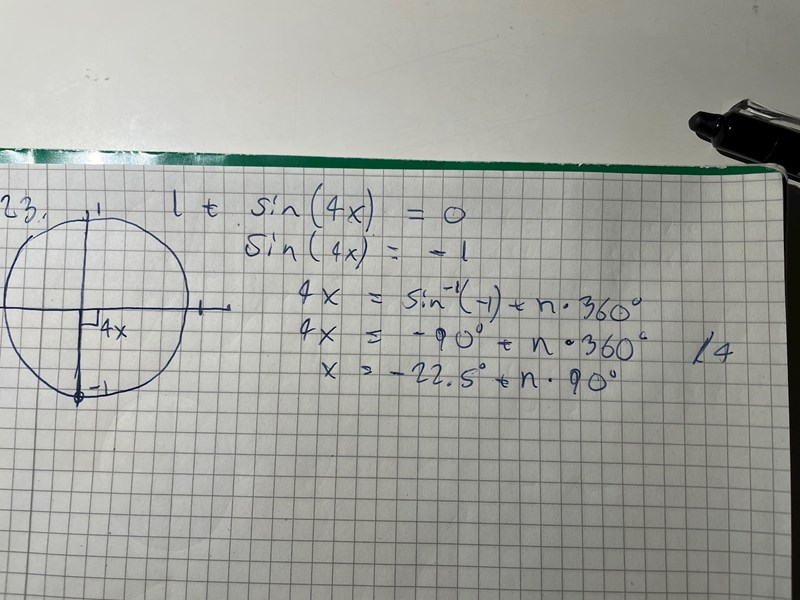 23. 1 + sin(4x) = 0
sin(4x) = -1
4x = sin⁻¹(-1) + n·360°
4x = -90° + n·360° /4
x = -22.5° + n·90°
1
4x
-1